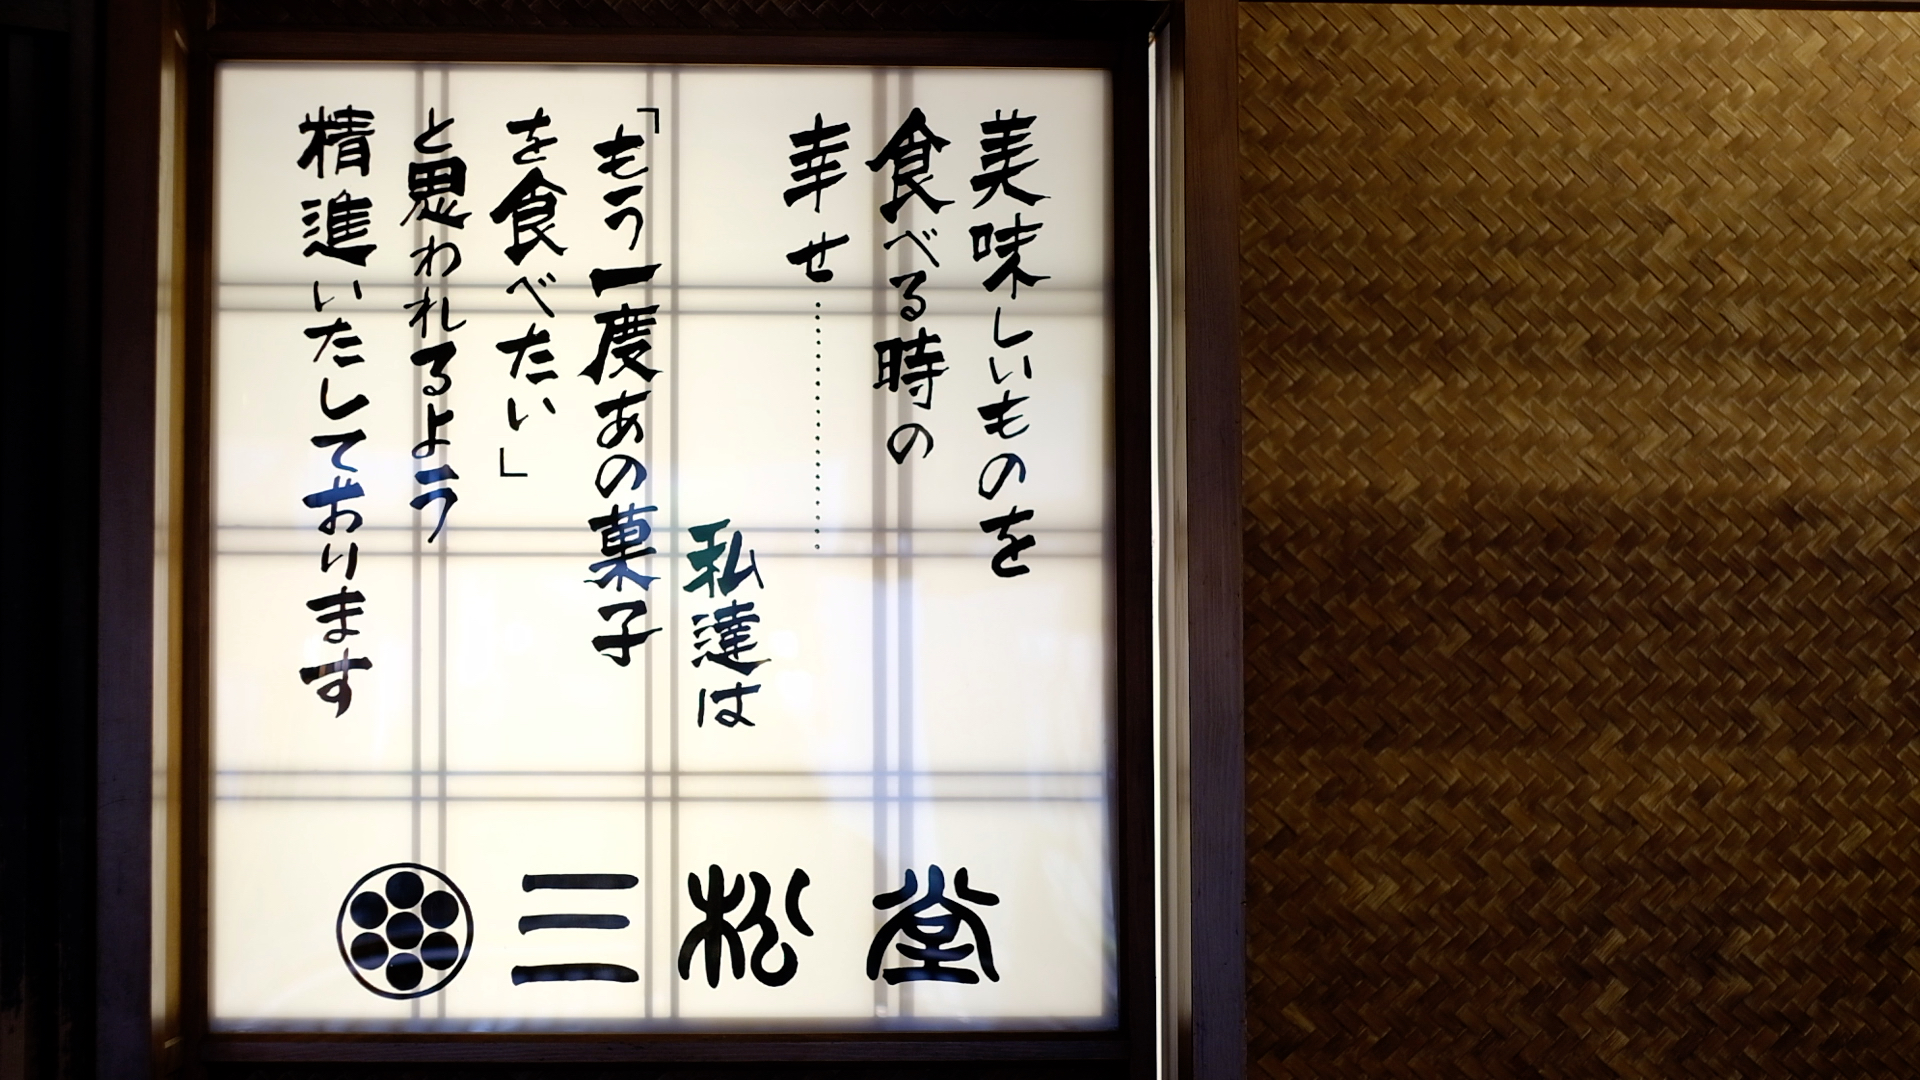 美味しいものを
食べる時の
幸せ…………
私達は
「もう一度あの菓子
を食べたい」
と思われるよう
精進いたしております
三松堂